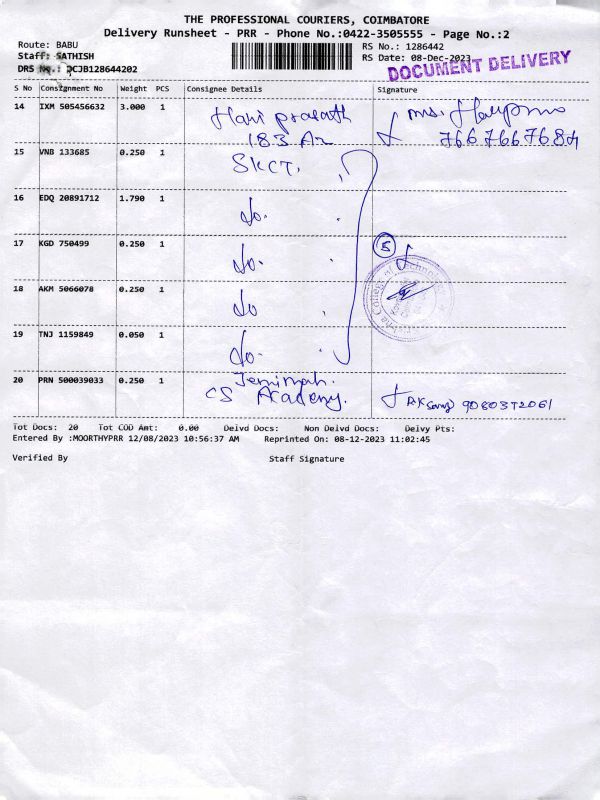 THE PROFESSIONAL COURIERS, COIMBATORE
Delivery Runsheet - PRR - Phone No.:0422-3505555 - Page No.:2
Route: BABU
RS No.: 1286442
Staff: SATHISH
RS Date: 08-Dec-2023
DRS No.: DCJB128644202
DOCUMENT DELIVERY
S No Consignment No Weight PCS Consignee Details Signature
14 IXM 505456632 3.000 1 Hari prasath
183 A2
7667667684
15 VNB 133685 0.250 1 SKCT.
16 EDQ 20891712 1.790 1 do.
17 KGD 750499 0.250 1 do. 5
18 AKM 5066078 0.250 1 do
College of Technology
19 TNJ 1159849 0.050 1 do.
20 PRN 500039033 0.250 1 Jemimah.
CS Academy.
Tot Docs: 20 Tot COD Amt: 0.00 Delvd Docs: Non Delvd Docs: Delvy Pts:
Entered By :MOORTHYPRR 12/08/2023 10:56:37 AM Reprinted On: 08-12-2023 11:02:45
Verified By Staff Signature